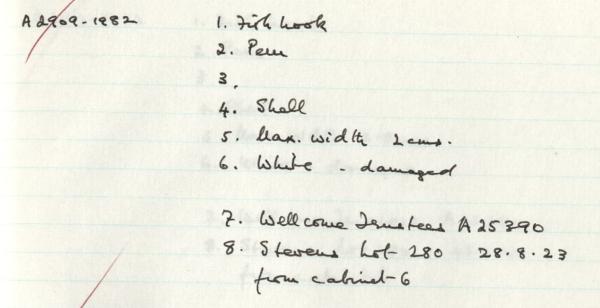 A2909-1982 1. Fish hook
2. Peru
3.
4. Shell
5. Max. width 2cms.
6. White - damaged
7. Wellcome Trustees A25390
8. Stevens Lot 280 28.8.23
from cabinet 6